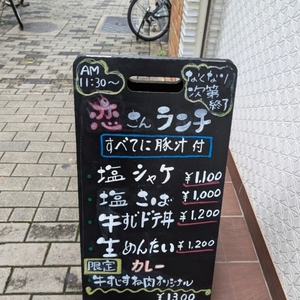 AM
11:30～
なくなり
次第
終了
恋さんランチ
すべてに豚汁付
・塩シャケ ¥1,100
・塩さば ¥1,000
・牛すじドテ丼 ¥1,200
・生めんたい ¥1,200
限定 カレー
牛すじすね肉オリジナル
¥1300